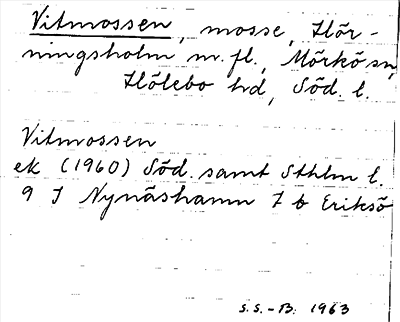 Vitmossen, mosse, Hör-
ningsholm m.fl., Mörkö sn,
Hölebo hd, Söd. l.
Vitmossen
ek (1960) Söd. samt Sthlm l.
9 I Nynäshamn 7 b Eriksö
S.S.-B. 1963